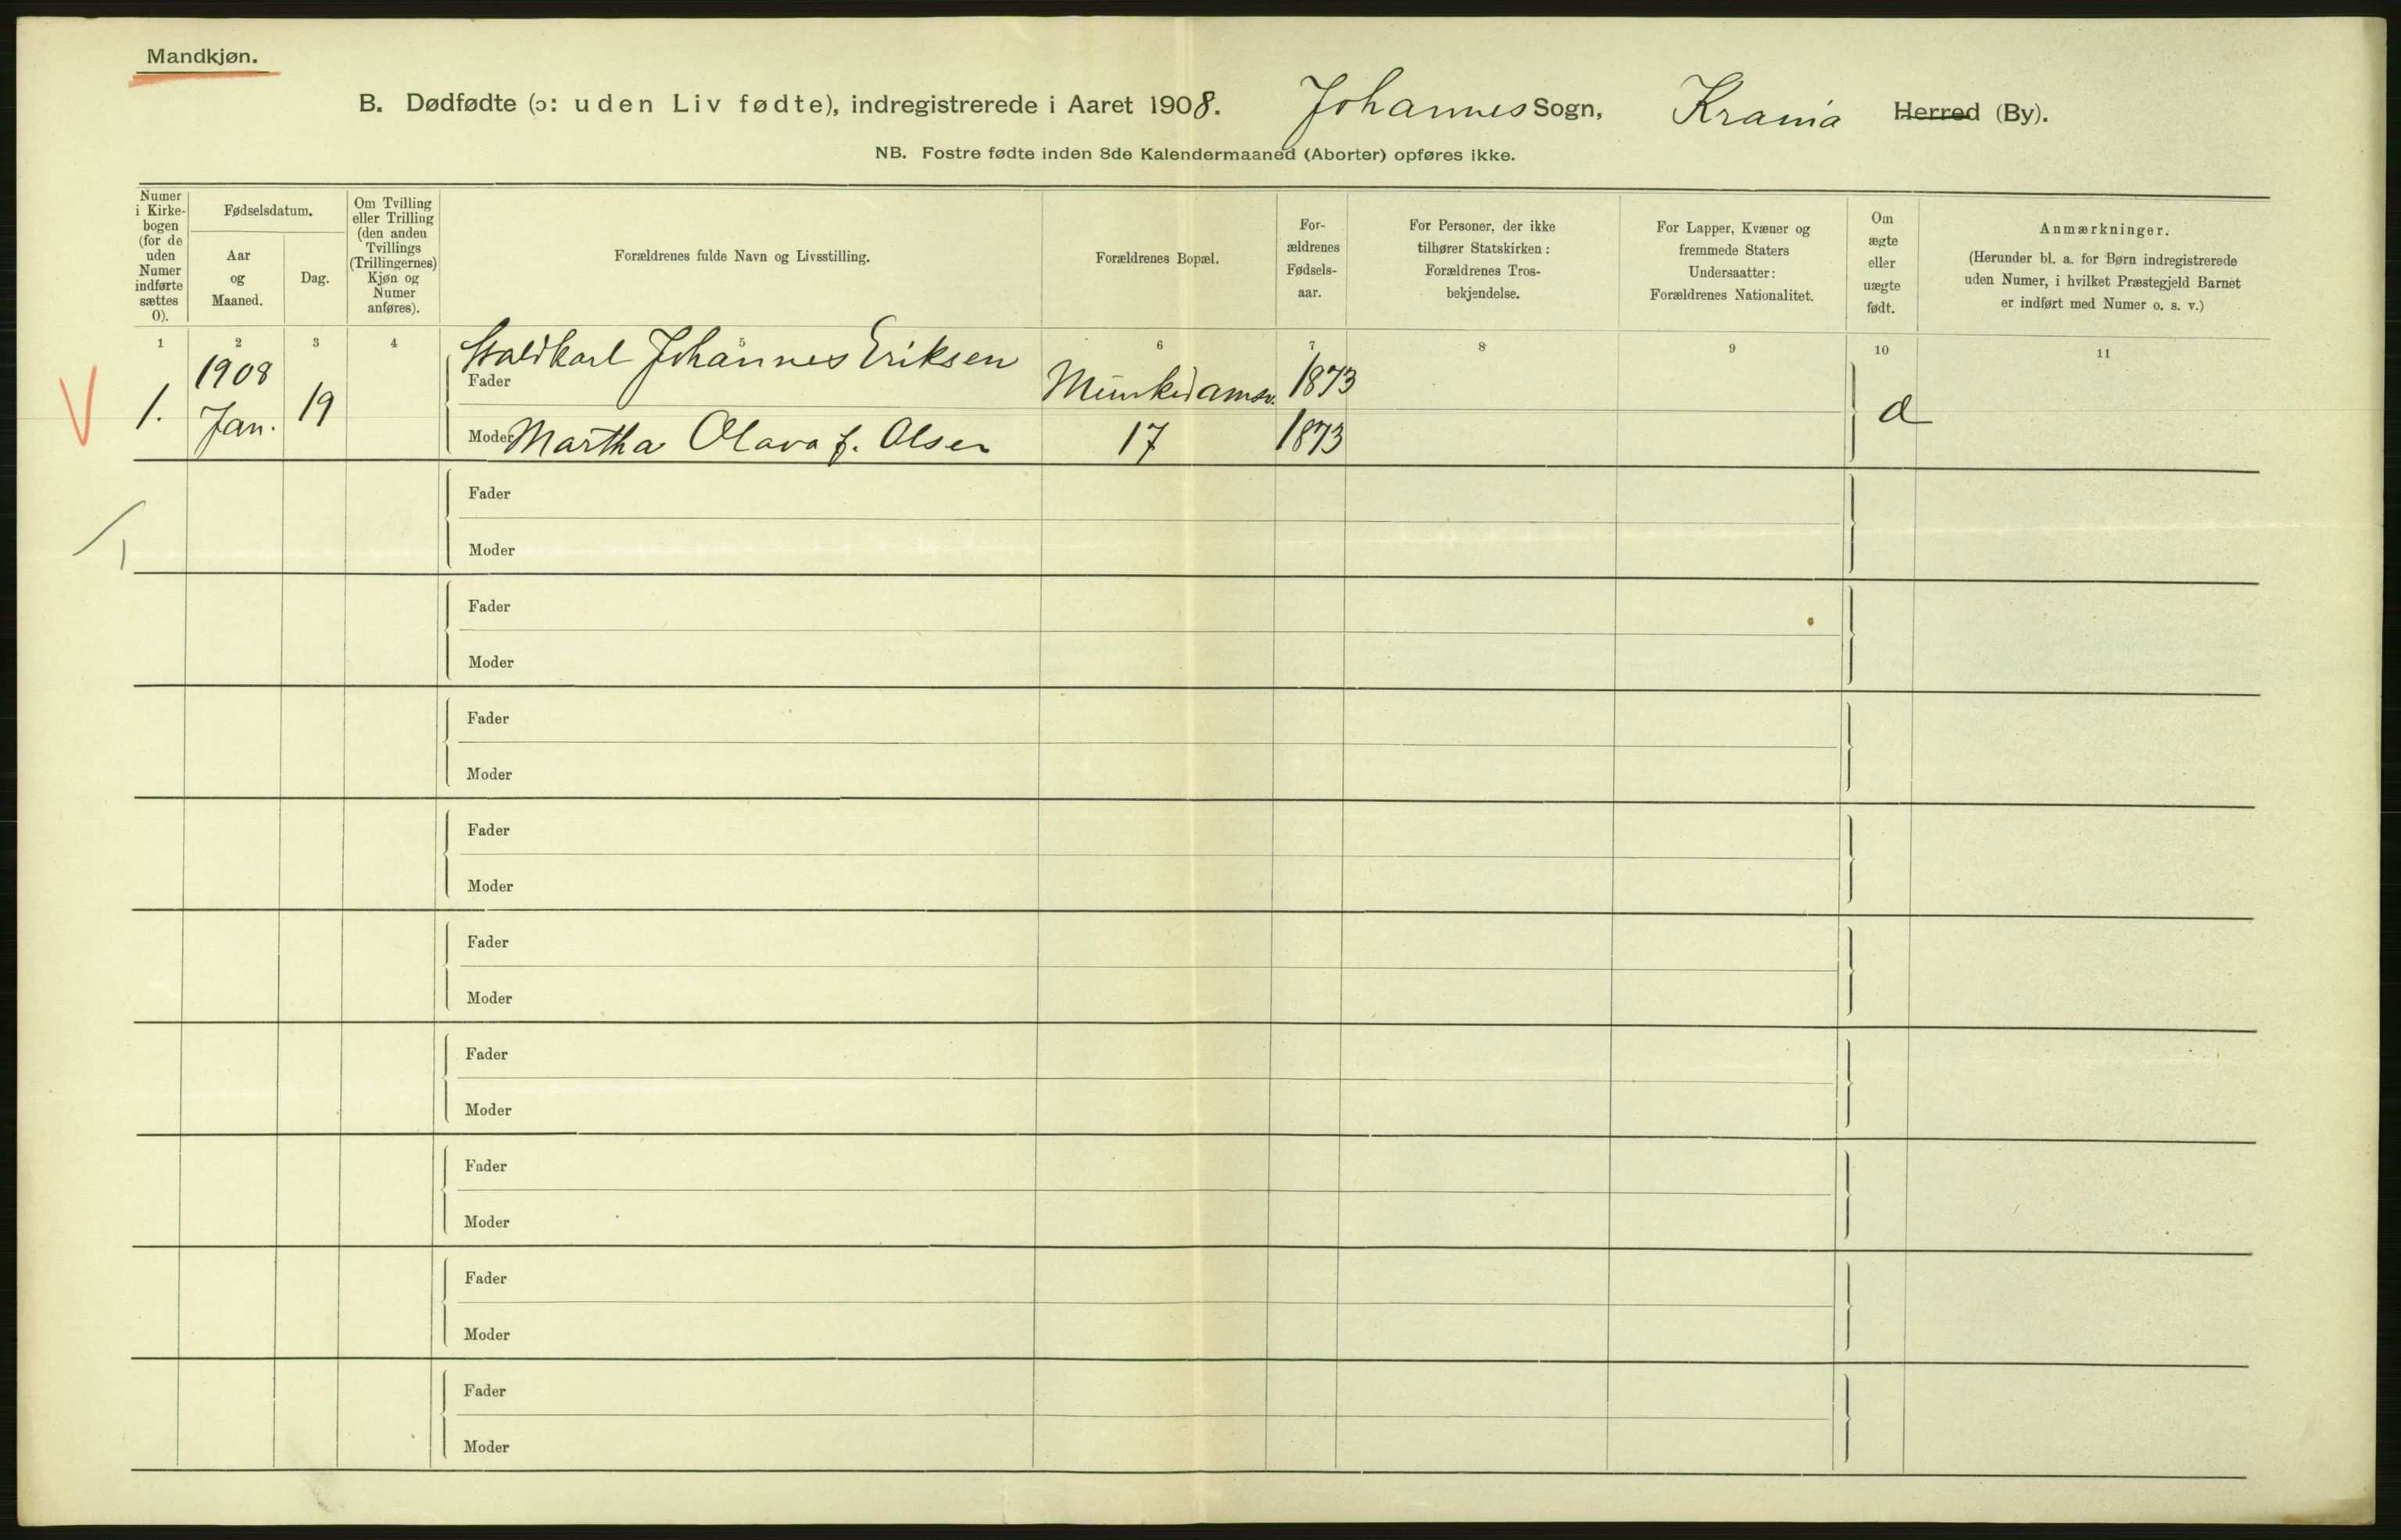 Mandkjøn.
B. Dødfødte (ɔ: uden Liv fødte), indregistrerede i Aaret 1908. Johannes Sogn, Krania Herred (By).
NB. Fostre fødte inden 8de Kalendermaaned (Aborter) opføres ikke.
Numer i Kirke-bogen (for de uden Numer indførte sættes 0).
Fødselsdatum.
Aar og Maaned.
Dag.
Om Tvilling eller Trilling (den anden Tvillings (Trillingernes) Kjøn og Numer anføres).
Forældrenes fulde Navn og Livsstilling.
Forældrenes Bopæl.
For-ældrenes Fødsels-aar.
For Personer, der ikke tilhører Statskirken: Forældrenes Tros-bekjendelse.
For Lapper, Kvæner og fremmede Staters Undersaatter: Forældrenes Nationalitet.
Om ægte eller uægte født.
Anmærkninger.
(Herunder bl. a. for Børn indregistrerede uden Numer, i hvilket Præstegjeld Barnet er indført med Numer o. s. v.)
1 2 3 4 5 6 7 8 9 10 11
1. 1908 Jan. 19
Fader Staldkarl Johannes Eriksen Munkedamsv. 1873
Moder Martha Olava f. Olsen 17 1873
Fader
Moder
Fader
Moder
Fader
Moder
Fader
Moder
Fader
Moder
Fader
Moder
Fader
Moder
Fader
Moder
Fader
Moder